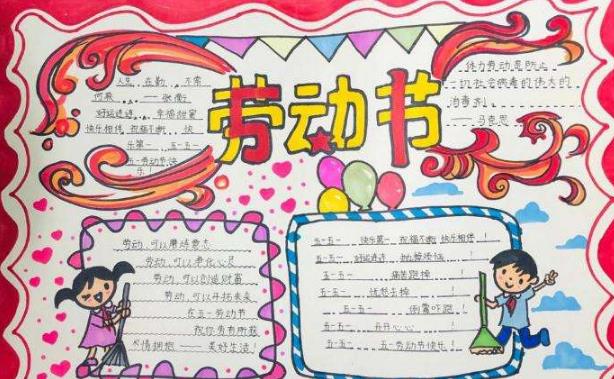 劳动节
人生在勤，不索
何获。——张衡
好运连连，幸福甜蜜
快乐相伴，祝福不断，快
乐第一，五一五一
五一劳动节快
乐！
体力劳动是防止
一切社会病毒的伟大的
消毒剂。
——马克思
劳动，可以磨练意志
劳动，可以
劳动，可以创造财富
劳动，可以开拓未来
在五一劳动节
祝你
——美好生活！
五一五一 快乐第一 祝福不断 快乐相伴！
五一五一 好运连连 ！
五一五一 痛苦跑掉！
五一五一 忧愁去掉！
五一五一 倒霉吓跑！
五一五一 开开心心！
五一五一 五一劳动节快乐！